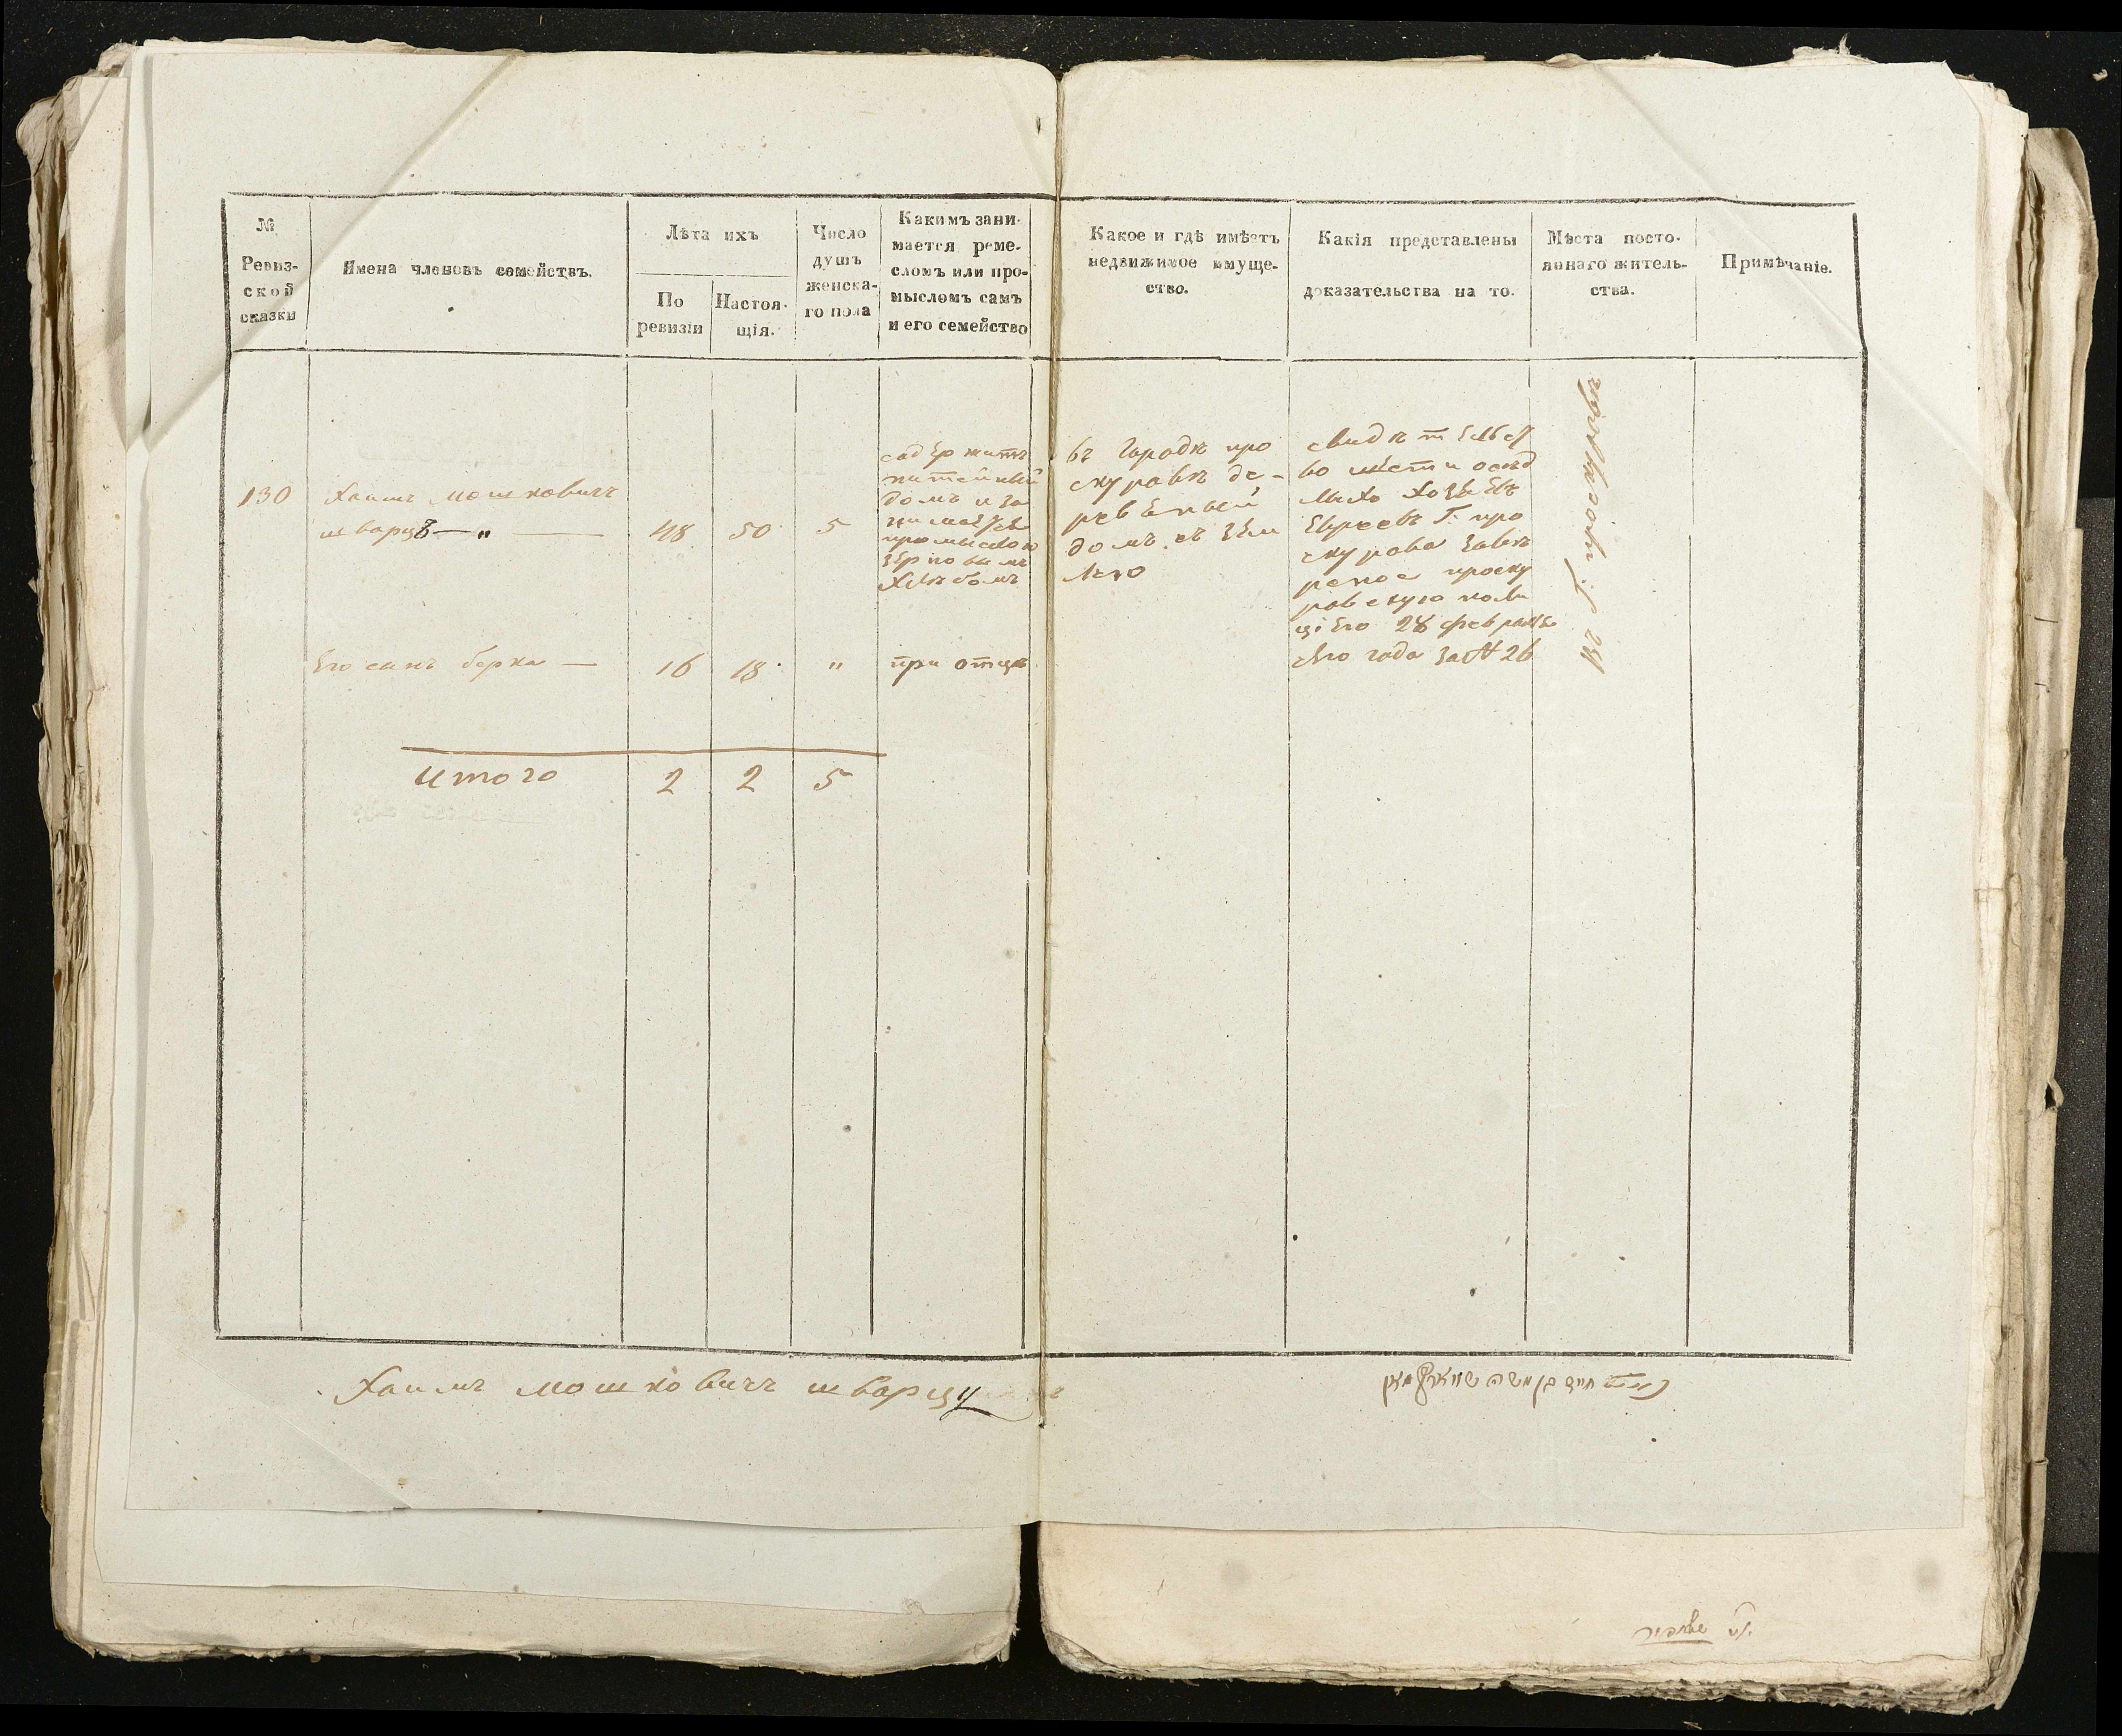 №
Ревиз-
ской
сказки
Имена членовъ семействъ.
Лѣта ихъ
По
ревизіи
Настоя-
щія.
Число
душъ
женска-
го пола
Какимъ зани-
мается реме-
сломъ или про-
мысломъ самъ
и его семейство
Какое и гдѣ имѣетъ
недвижимое имуще-
ство.
Какія представлены
доказательства на то.
Мѣста посто-
яннаго житель-
ства.
Примѣчаніе.
130
Хаимъ Мошковичъ
шварцъ — „ —
48
50
5
садержитъ
питейный
домъ и за
промысломъ
хлѣбомъ
въ Гарадѣ про
скуравѣ де-
ревеный
домъ съ зем
лею
свидѣтельст
во шести осѣд
лыхъ хозяевъ
Евреевъ Г. про
скурова завѣ
реное проску
ровскую поли
ціею 28 февраля
сего года за № 26
въ Г. проскуровѣ
Его синъ берка —
16
18
„
при отцѣ
Итого
2
2
5
Хаимъ мошковичъ шварц
חיים בן משה שווארצמאן